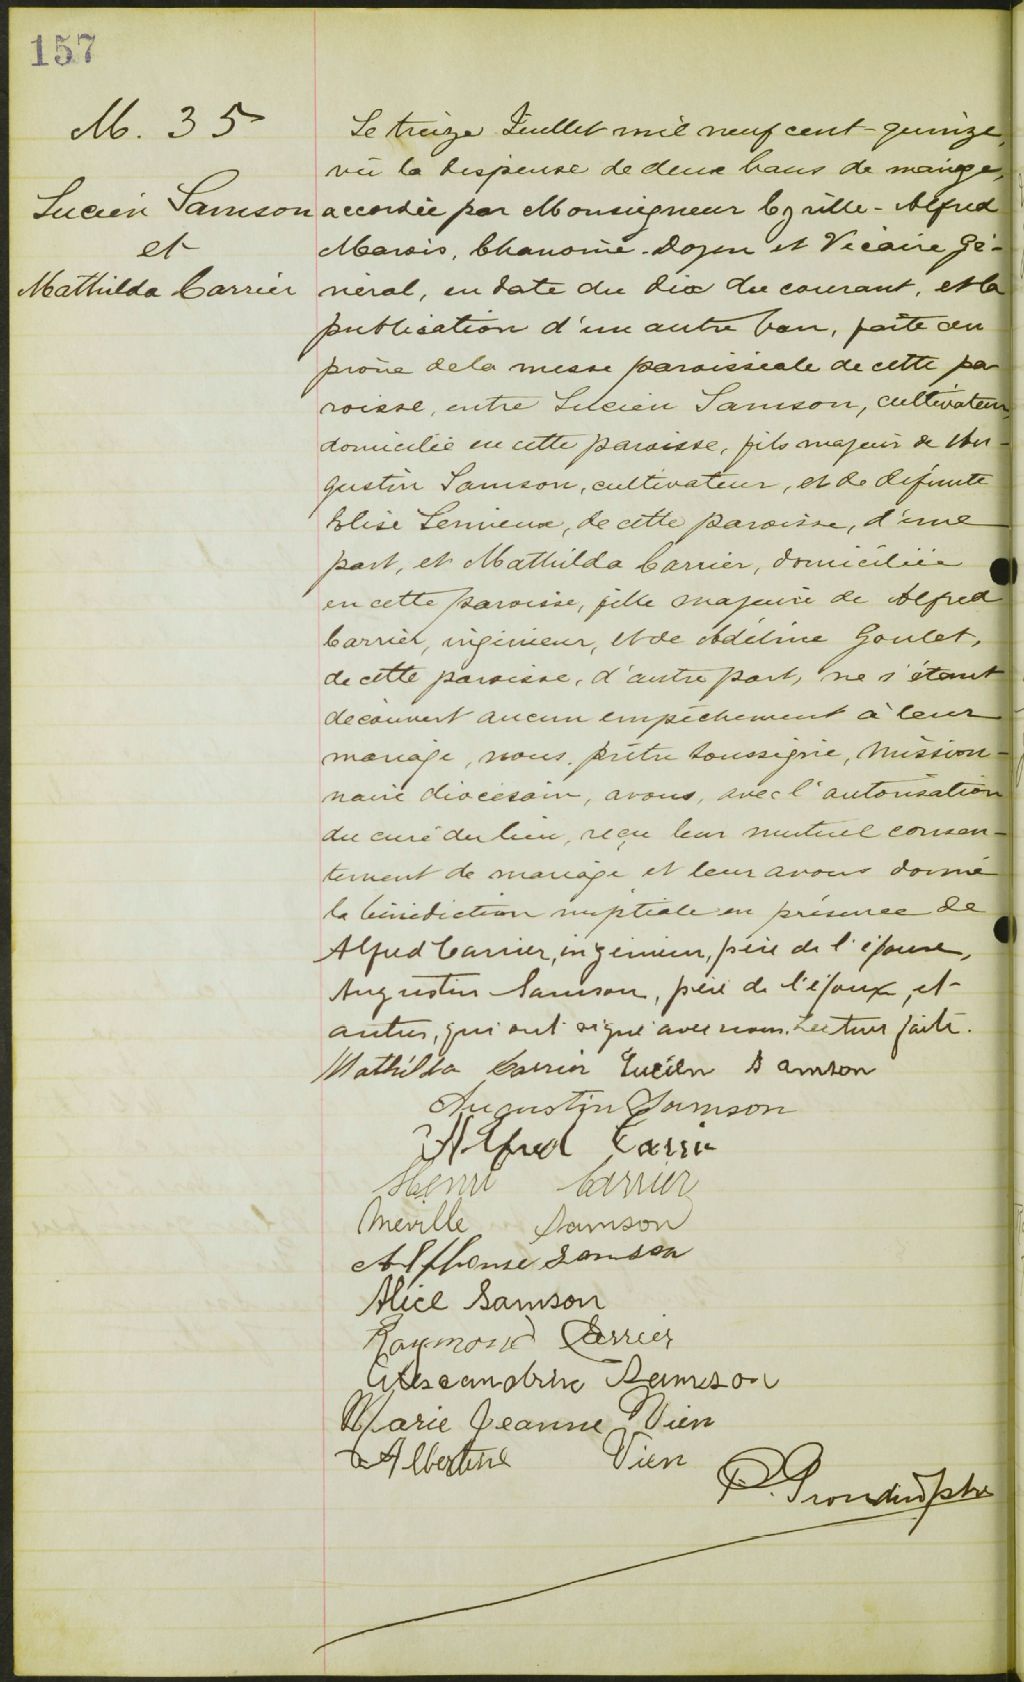 157
M. 35
Lucien Samson
et
Mathilda Carrier
Le treize Juillet mil neuf cent-quinze,
vu la dispense de deux bans de mariage,
accordée par Monseigneur Cyrille-Alfred
Marois, Chanoine-Doyen et Vicaire Gé-
néral, en date du dix du courant, et la
publication d'un autre ban, faite au
prône de la messe paroissiale de cette pa-
roisse, entre Lucien Samson, cultivateur,
domicilié en cette paroisse, fils majeur de Au-
gustin Samson, cultivateur, et de défunte
Elise Lemieux, de cette paroisse, d'une
part, et Mathilda Carrier, domiciliée
en cette paroisse, fille majeure de Alfred
Carrier, ingénieur, et de Adéline Goulet,
de cette paroisse, d'autre part, ne s'étant
découvert aucun empêchement à leur
mariage, nous, prêtre soussigné, mission-
naire diocésain, avons, avec l'autorisation
du curé du lieu, reçu leur mutuel consen-
tement de mariage et leur avons donné
la bénédiction nuptiale en présence de
Alfred Carrier, ingénieur, père de l'épouse,
Augustin Samson, père de l'époux, et
autres, qui ont signé avec nous. Lecture faite.
Mathilda Carrier Lucien Samson
Augustin Samson
Alfred Carrie
Henri Carrier
Méville Samson
Alphonse Samson
Alice Samson
Raymond Carrier
Alexandrine Samson
Marie Jeanne Vien
Albertine Vien
P. ptre